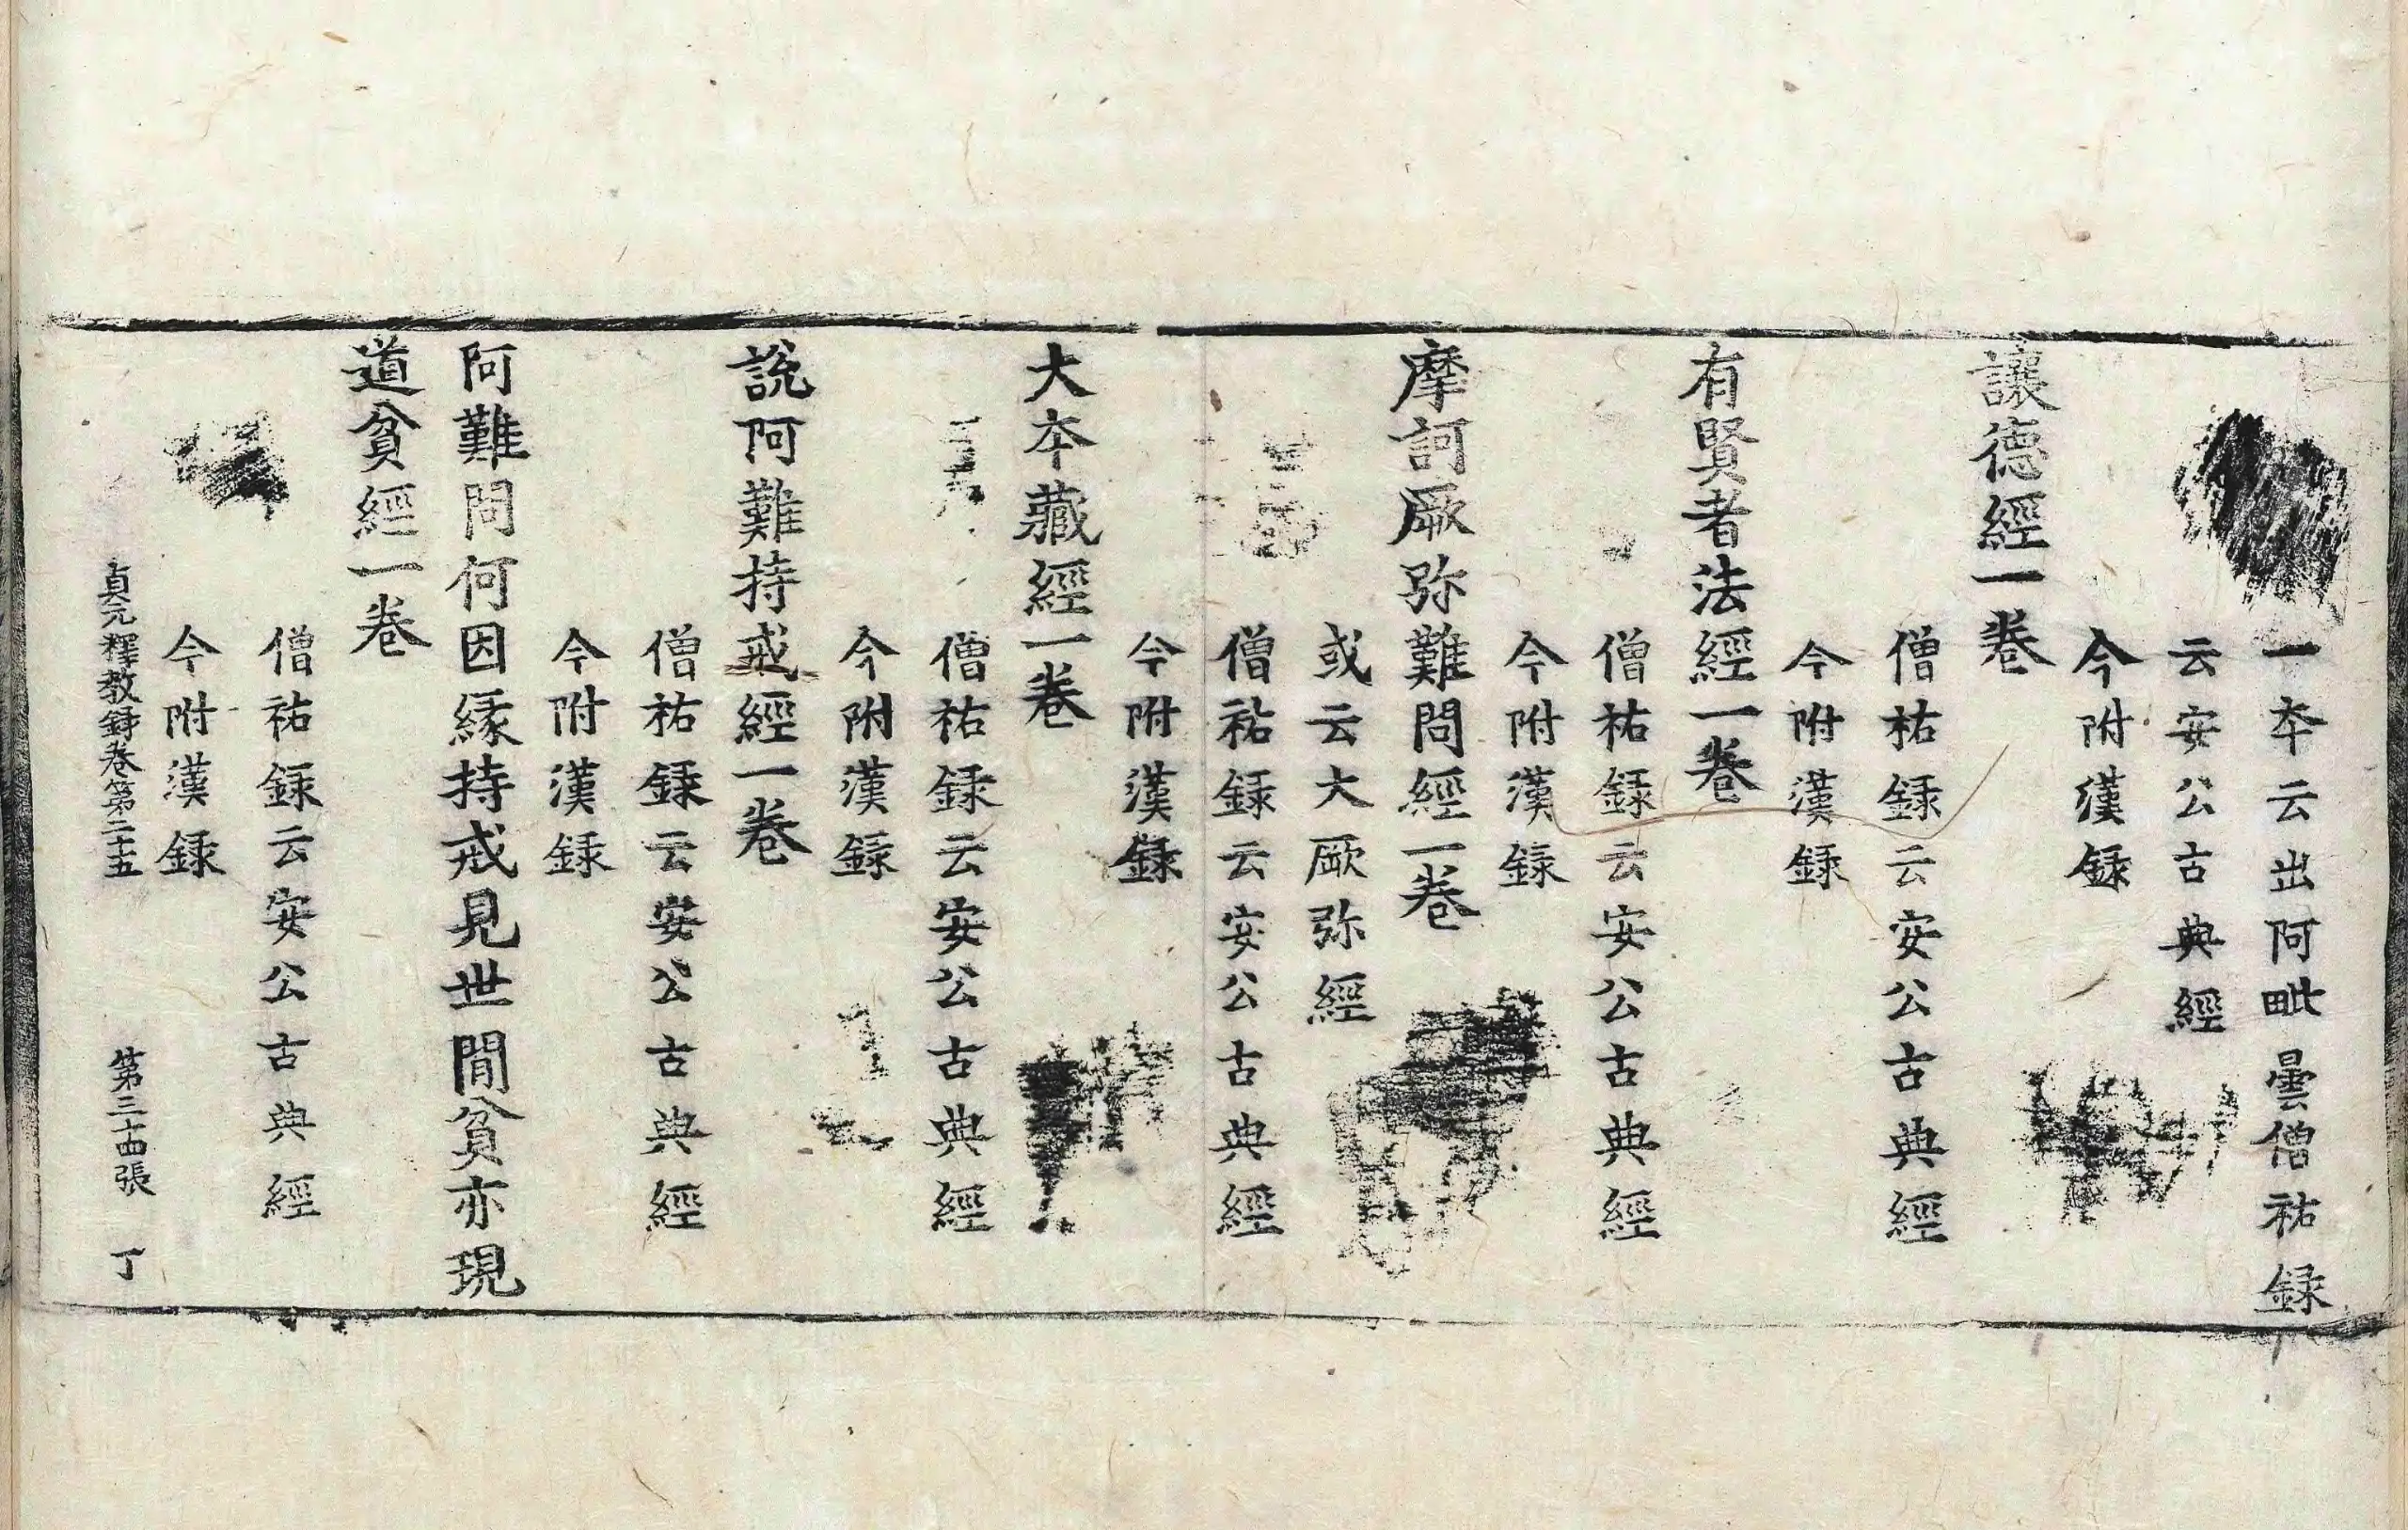 一本云出阿毗曇僧祐録
云安公古典經
今附漢録
讓德經一卷
僧祐録云安公古典經
今附漢録
有賢者法經一卷
僧祐録云安公古典經
今附漢録
摩訶厥弥難問經一卷
或云大厥弥經
僧祐録云安公古典經
今附漢録
大本藏經一卷
僧祐録云安公古典經
今附漢録
說阿難持戒經一卷
僧祐録云安公古典經
今附漢録
阿難問何因緣持戒見世間貧亦現
道貧經一卷
僧祐録云安公古典經
今附漢録
貞元釋教録卷第二十五 第三十四張 丁